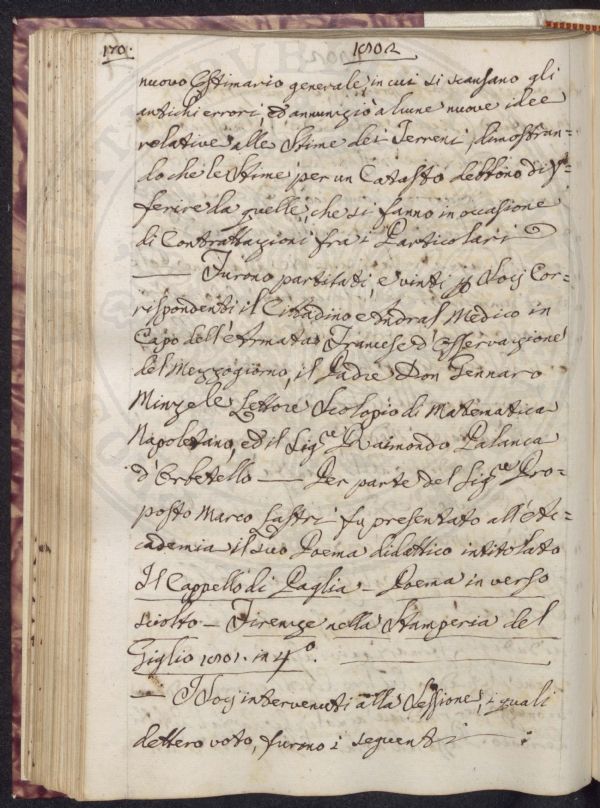 170.
1802
nuovo Estimario generale, in cui si scansano gli
antichi errori, ed annunziò alcune nuove idee
relative alle Stime dei Terreni, dimostran=
do che le Stime per un Catasto debbono di=
ferire da quelle, che si fanno in occasione
di Contrattazioni fra i Particolari
— Furono partitati, e vinti p Socj Cor=
rispondenti il Cittadino Medico in
Capo dell'Armata Francese d'Osservazione
del Mezzogiorno, il Padre Don Gennaro
Minzele Lettore Scolopio di Matematica
Napoletano, ed il Sigre Raimondo Palanca
d'Orbetello — Per parte del Sigre Pro=
posto Marco Lastri fu presentato all'Ac=
cademia il suo Poema didattico intitolato
Il Cappello di Paglia — Poema in verso
sciolto — Firenze nella Stamperia del
Giglio 1801. in 4º.
— I Socj intervenuti alla Sessione, i quali
dettero voto, furono i seguenti :